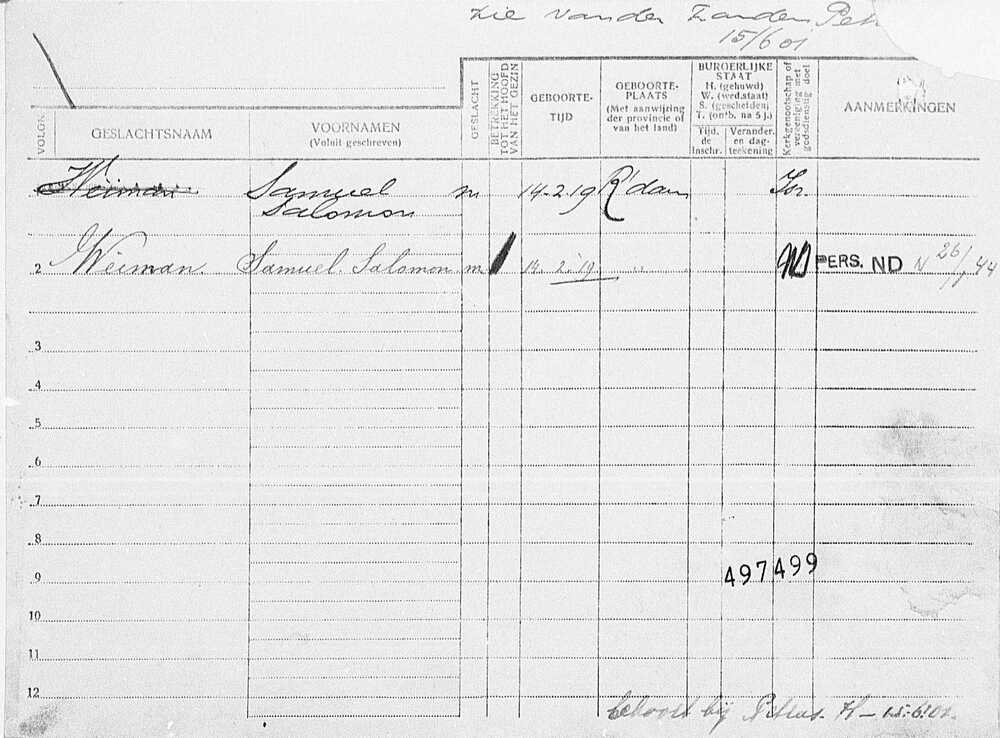 Zie van der Zanden Pet
15/6 01
VOLGN.
GESLACHTSNAAM
VOORNAMEN
(Voluit geschreven)
GESLACHT
BETREKKING
TOT HET HOOFD
VAN HET GEZIN
GEBOORTE-
TIJD
GEBOORTE-
PLAATS
(Met aanwijzing
der provincie of
van het land)
BURGERLIJKE
STAAT
H. (gehuwd)
W. (wed.staat)
S. (gescheiden)
T. (ontb. na 5 j.)
Tijd.
de
inschr.
Verander.
en dag-
teekening
Kerkgenootschap of
vereeniging met
godsdienstig doel
AANMERKINGEN
Weiman Samuel m 14-2-19 R'dam Isr.
Salomon
2 Weiman. Samuel. Salomon m 14. 2. 19. " ND PERS. ND N 26/ 44
3
4
5
6
7
8
9 497499
10
11
12
behoort bij Petrus. H - 15-6-01.